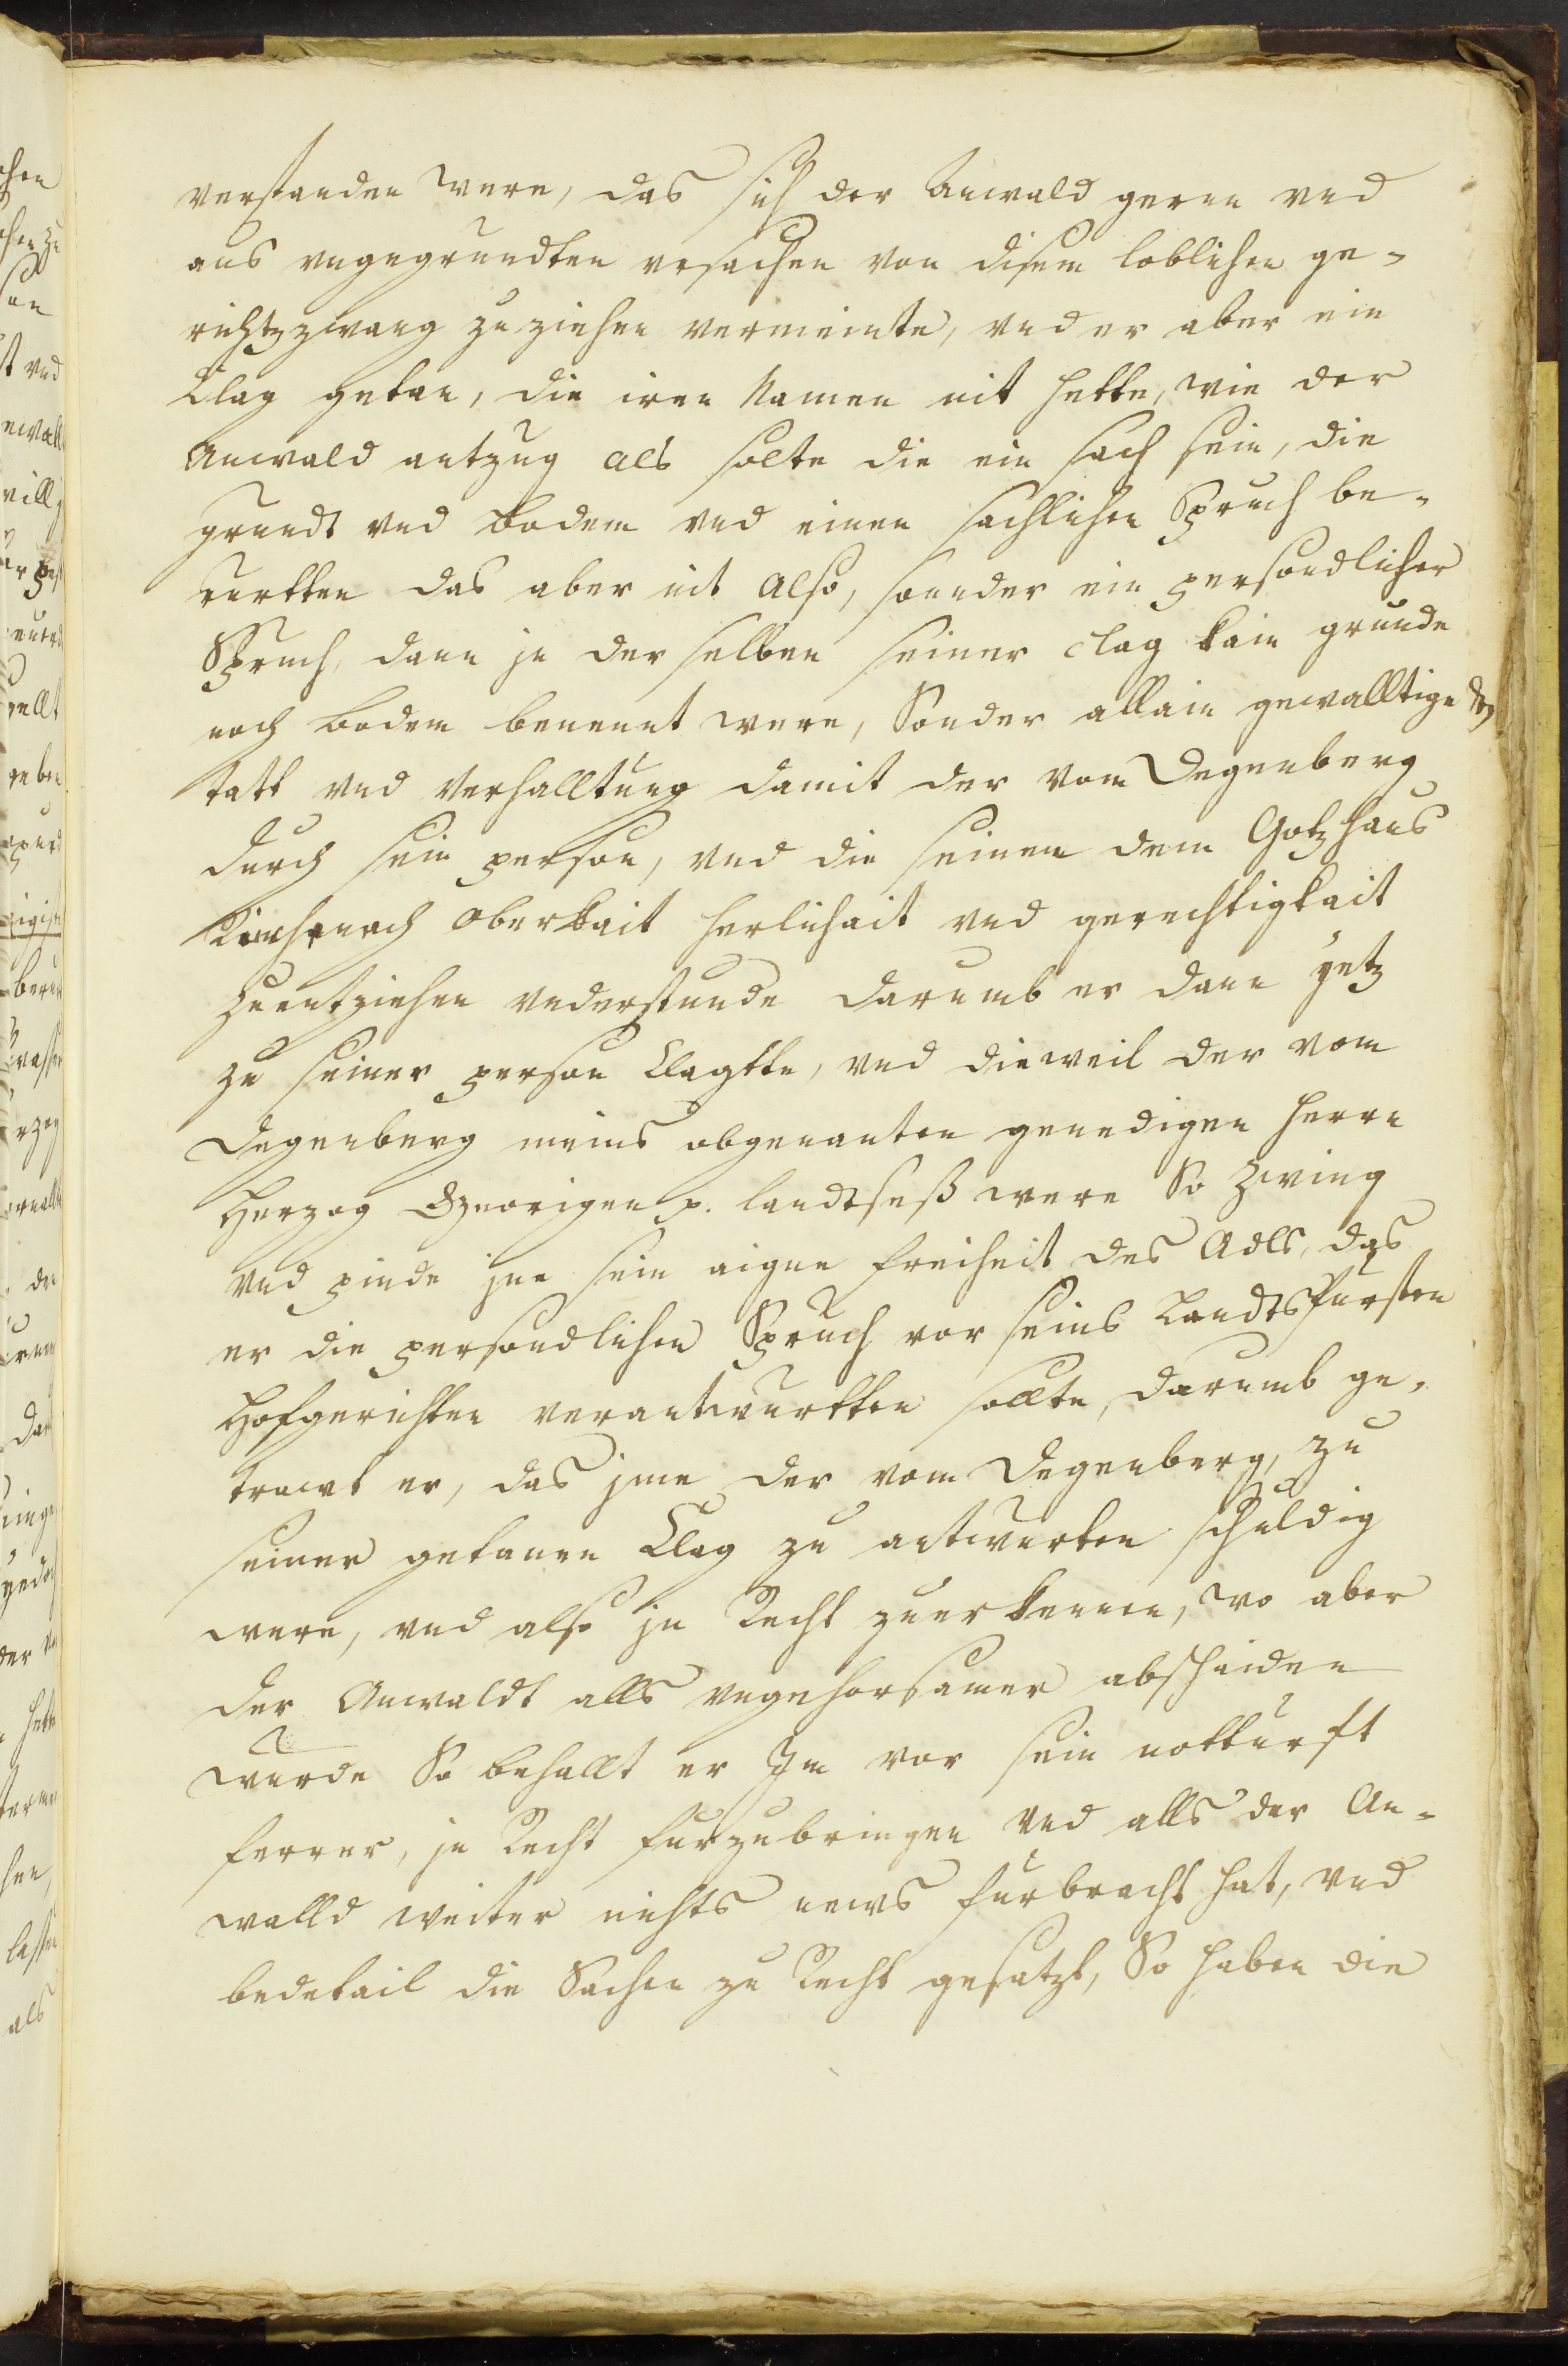 verstanden were, das sich der Anwald geren vnd
aus vngegrundten vrsachen von disem loblichen ge-
richtzzwang zu ziehen vermeinte, vnd er aber ein
Clag getan, die iren Namen nit hette, wie der
Anwald antzug als solte die ein sach sein, die
grundt vnd bodem vnd einen sachlichen Spruch be-
rurtten das aber nit also, sounder ein persondlicher
Spruch, dann jn der selben seiner clag kain grunde
noch bodem benennt were, Sonder allain gewalltige
tatt vnd Verhalltung damit der vom Degenberg
durch sein person, vnd die seinen dem Gotzhaus
Rinchnach Oberkait herlichait vnd gerechtigkait
zuentziehen vnderstunde darumb er dann yetz
zu seiner person Clagtte, vnd dieweil der vom
Degenberg meins obgenanten genedigen herrn
Herzog Georigen p. landtseß were So zwing
vnd pinde jne sein aigne freiheit des Adls, das
er die persondlichen Spruch vor seins Landtsfürsten
Hofgerichten verantwurtten sollte, darumb ge-
trawt er, das jme der vom Degenberg, zu
seiner getanen Clag zu antwurten schuldig
were, vnd also jn Recht zuerkennen, wo aber
der Anwaldt alls vngehorsamer abschaiden
wurde So behallt er Jm vor sein notturft
ferrer, jn Recht furzubringen Vnd alls der An-
walld weiter nichts news fürbracht hat, vnd
bedetail die Sachen zu Recht gesatzt, So haben die